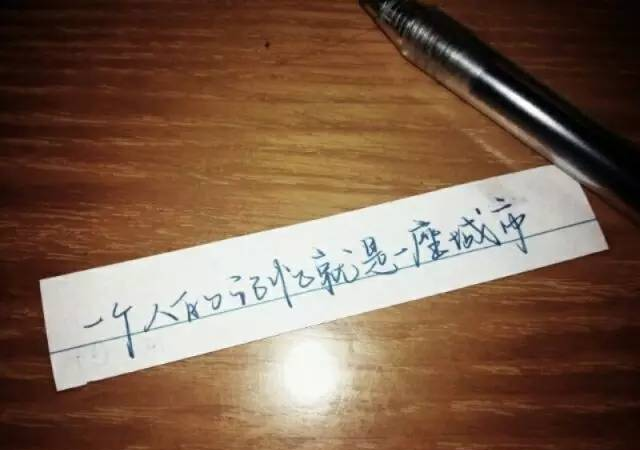 一个人的记忆就是一座城市